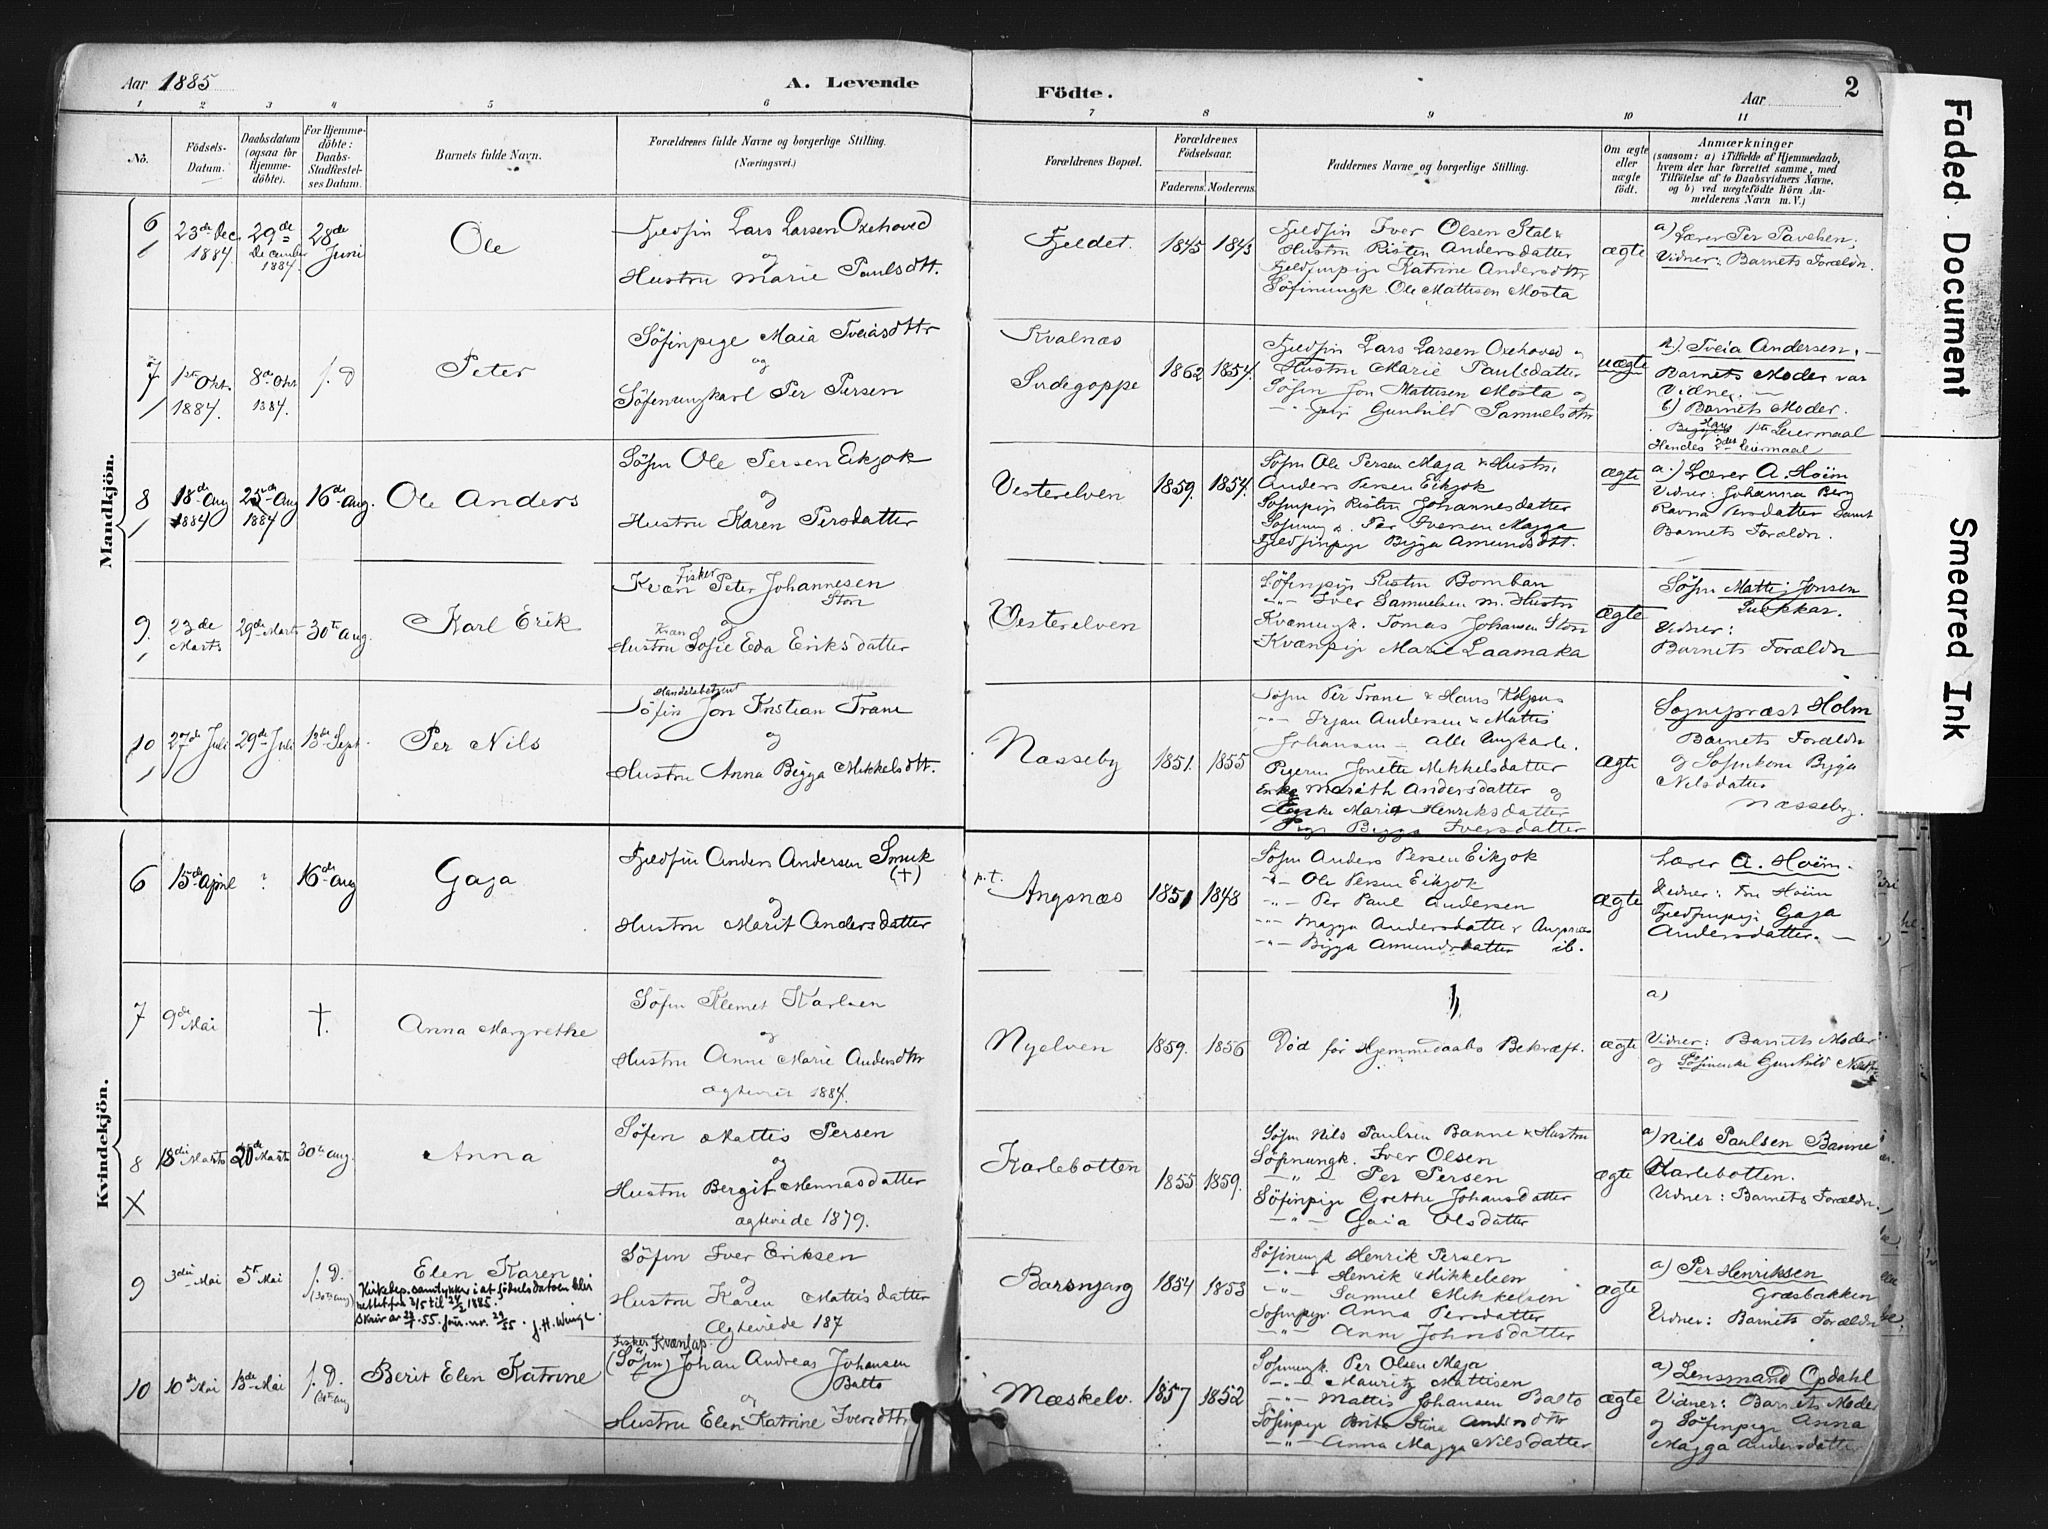 Aar 1885
A. Levende
Födte.
Aar
2
1 2 3 4 5 6 7 8 9 10 11
No.
Födsels-Datum.
Daabsdatum (ogsaa før Hjemme-döbte).
For Hjemme-döbte: Daabs-Stadfæstel-ses Datum.
Barnets fulde Navn.
Forældrenes fulde Navne og borgerlige Stilling.
(Næringsvei.)
Forældrenes Bopæl.
Forældrenes Födselsaar.
Faderens. Moderens.
Faddernes Navne og borgerlige Stilling.
Om ægte eller uægte födt.
Anmærkninger
(saasom: a) i Tilfælde af Hjemmedaab, hvem der har forrettet samme, med Tilföielse af to Daabsvidners Navne, og b) ved uægtefödte Börn An-melderens Navn m. V.)
Mandkjön.
6
23de Dec. 1884
29de December 1884.
28de Juni
Ole
Fjeldfin Lars Larsen Oxehoved
og
Hustru Marie Paulsdtt.
Fjeldet.
1845 1843
Fjeldfin Iver Olsen Stal &
Hustru Risten Andersdatter
Fjeldfinpige Katrine Andersdttr
Söfinungk. Ole Mattisen Mosta
ægte
a) Lærer Per Pavelsen.
Vidner: Barnets Forældre.
7
1ste Okt. 1884.
8de Okt 1884.
f. D
Peter
Söfinpige Maia Tveiasdttr
og
Söfinungkarl Per Persen
Kvalnæs
Sudegoppe
1862 1854.
Fjeldfin Lars Larsen Oxehoved
Hustru Marie Paulsdatter
Söfin Jon Mattisen Mosta og
Gunhild Samuelsdttr
uægte
a) Tveia Andersen.
Barnets Moder var
Vidne.
b) Barnets Moder.
Hans 1ste Leiermaal
Hendes 2det Leiermaal
8
18de Aug 1884
25de Aug 1884
16de Aug.
Ole Anders
Söfin Ole Persen Eikjok
og
Hustru Karen Persdatter
Vesterelven
1859. 1854.
Söfin Ole Persen Maja & Hustru
Anders Persen Eikjok
Söfinpige Ristin Johannesdatter
Per Iversen Magga
Fjeldfinpige Bigga Amundsdtt.
ægte
a.) Lærer A. Hoëm
Vidner: Johanna Berg
Ravna Persdatter Samt
Barnets Forældre.
9.
23de Marts
29de Marts
30te Aug.
Karl Erik
Kvæn Fisker Peter Johannesen
Stor
og
Hustru Kvæn Sofie Eda Eriksdatter
Vesterelven
Söfinpige Ristin Bomban
-"- Iver Samuelsen m. Hustru
Kvænungk. Tomas Johansen Stor
Kvænpige Marie Laamaka
ægte
Söfin Mattis Jonsen
Vidner:
Barnets Forældre
10
27de Juli
29de Juli
13de Sept.
Per Nils
Handelsbetjent
Söfin Jon Kristian Trane
og
Hustru Anna Bigga Mikkelsdtt.
Næsseby
1851. 1855
Söfin Per Trane & Hans
Andersen & Mattis
Johansen - Alle Ungkarle.
Pigerne Jonette Mikkelsdatter
Enke Marith Andersdatter og
Marie Henriksdatter
Pige Bigga Iversdatter
ægte
Sognepræst Holm
Barnets Forældre
og Söfinkone Bigga
Nilsdatter
Næsseby.
Kvindekjön.
6
15de April
?
16de Aug
Gaja
Fjeldfin Anders Andersen Smuk
(+)
og
Hustru Marit Andersdatter
p.t. Angsnæs
1851 1848
Söfin Anders Persen Eikjok
-"- Ole Persen Eikjok
-"- Per Paul Andersen
-"- Magga Andersdatter Angsnæs
-"- Bigga Amundsdatter ib.
ægte
Lærer A. Hoëm.
Vidner: Fru Hoëm
Fjeldfinpige Gaja
Andersdatter.
7
9de Mai
†.
Anna Margrethe
Söfin Klemet Karlsen
og
Hustru Anne Marie Andersdttr
Ægteviet 1884.
Nyelven
1859. 1856
Död før Hjemmedaabs Bekræft.
ægte
a)
Vidner: Barnets Moder
og Söfinenke Gunhild
8
18de Marts
20de Marts
30te Aug.
Anna
Söfin Mattis Persen
og
Hustru Bergit Mennasdatter
Ægteviede 1879.
Karlebotten
1855 1859.
Söfin Nils Paulsen Banne & Hustru
Söfinungk. Iver Olsen
-"- Per Persen
Söfinpige Grethe Johansdatter
-"- Gaia Olsdatter
ægte
a) Nils Paulsen Banne
Karlebotten.
Vidner: Barnets Forældre.
9
3die Mai
5te Mai
f. D.
(30te Aug)
Elen Karen
Kirkedep. samtykker i at födselsdatoen blir
rettet fra 3/5 til 24/2 1885.
J.H. Winge.
Söfin Iver Eriksen
og
Hustru Karen Mattisdatter
Ægteviede 187
Barsnjarg
1854 1853
Söfinungk Henrik Persen
-"- Henrik Mikkelsen
-"- Samuel Mikkelsen
Söfinpige Anna Persdatter
-"- Anne Johnsdatter
ægte
a) Per Henriksen
Græsbakken
Vidner: Barnets Forældre
10
10de Mai
13de Mai
f. D.
Berit Elen Katrine
Fisker Kvænlap.
(Söfin) Johan Andreas Johansen
Balto
og
Hustru Elen Katrine Iversdttr
Mæskelv.
1857 1852
Söfinungk. Per Olsen Maja
-"- Mauritz Mattisen
-"- Mattis Johansen Balto
Söfinpige Brita Stina Andersdttr
-"- Anna Magga Nilsdatter
ægte
a) Lensmand Opdahl
Vidner: Barnets Moder
og Söfinpige Anna
Magga Andersdatter
Faded Document
Smeared Ink